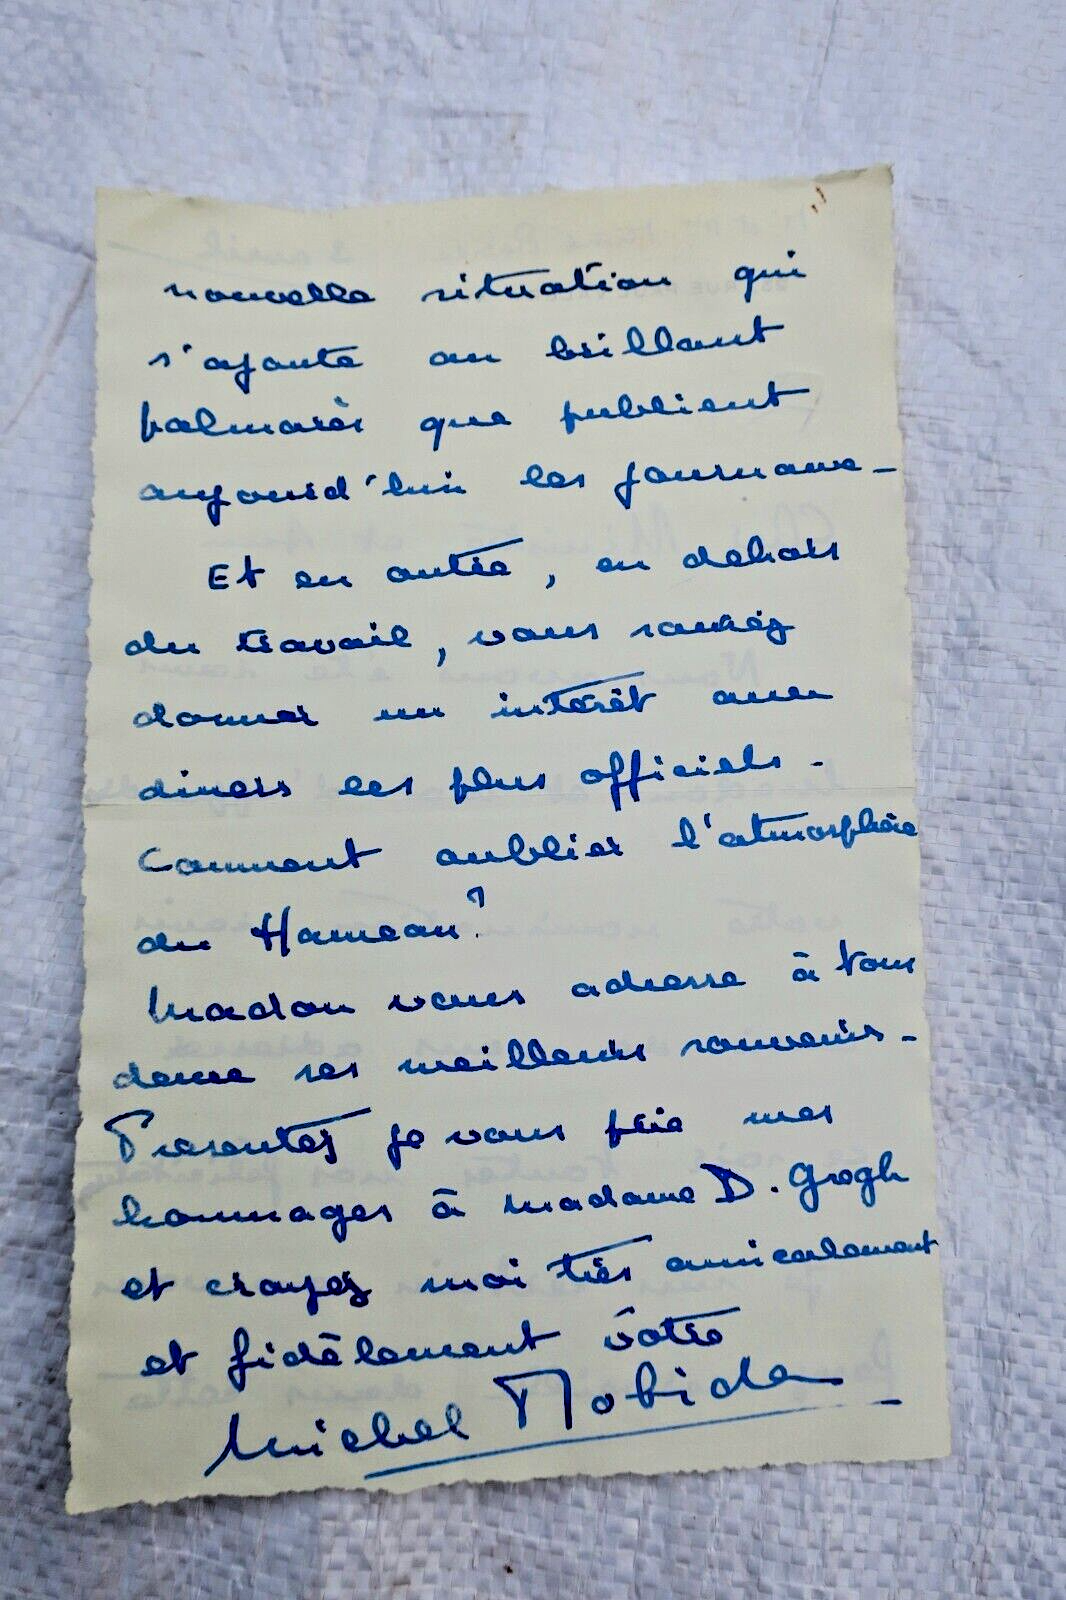 nouvelle situation qui
s'ajoute au brillant
palmarès que publient
aujourd'hui les journaux_
Et en outre, en dehors
du travail, vous saurez
donner un intérêt aux
diners les plus officiels.
Comment oublier l'atmosphère
du Hameau?
Madon vous adresse à tous
deux ses meilleurs souvenirs_
Présentez je vous prie mes
hommages à madame D. Grogh
et croyez moi très amicalement
et fidèlement vôtre
Michel Robida